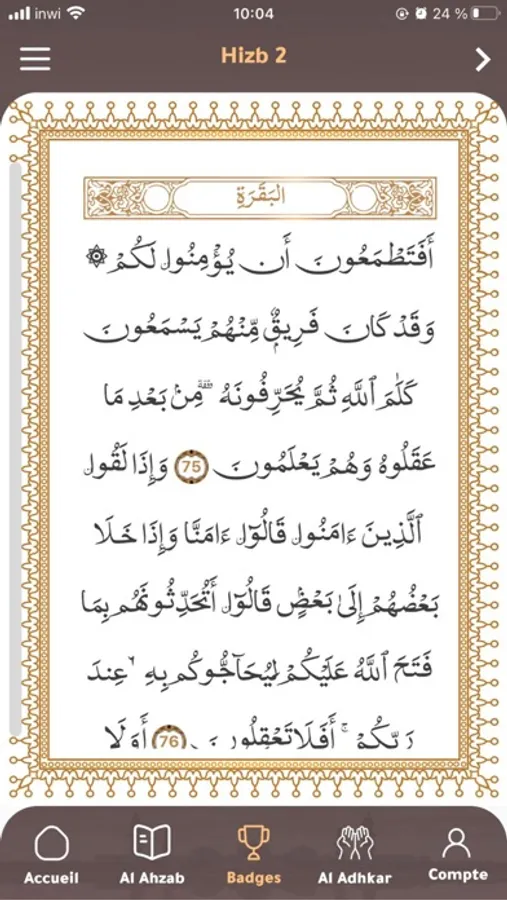 inwi 10:04 24 %
Hizb 2
البَقَرَةِ
أَفَتَطْمَعُونَ أَن يُؤْمِنُوا۟ لَكُمْ ۞
وَقَدْ كَانَ فَرِيقٌ مِّنْهُمْ يَسْمَعُونَ
كَلَٰمَ ٱللَّهِ ثُمَّ يُحَرِّفُونَهُۥ مِنۢ بَعْدِ مَا
عَقَلُوهُ وَهُمْ يَعْلَمُونَ 75 وَإِذَا لَقُوا۟
ٱلَّذِينَ ءَامَنُوا۟ قَالُوٓا۟ ءَامَنَّا وَإِذَا خَلَا
بَعْضُهُمْ إِلَىٰ بَعْضٍ قَالُوٓا۟ أَتُحَدِّثُونَهُم بِمَا
فَتَحَ ٱللَّهُ عَلَيْكُمْ لِيُحَآجُّوكُم بِهِۦ عِندَ
رَبِّكُمْ ۚ أَفَلَا تَعْقِلُونَ 76 أَوَلَا
Accueil Al Ahzab Badges Al Adhkar Compte